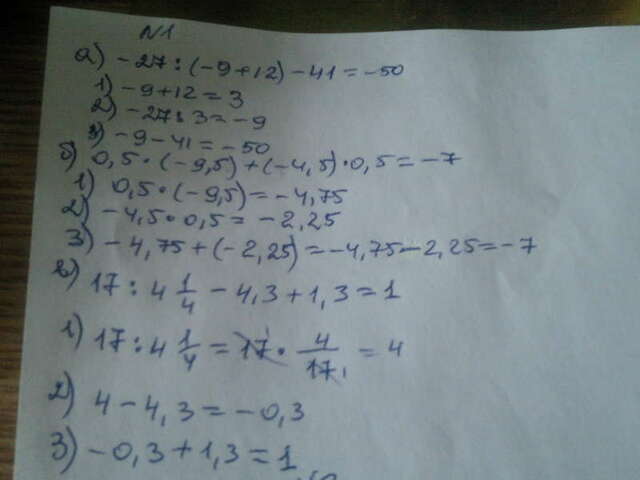 N1
а) -27 : (-9+12) - 41 = -50
1) -9+12 = 3
2) -27 : 3 = -9
3) -9-41 = -50
б) 0,5 · (-9,5) + (-4,5) · 0,5 = -7
1) 0,5 · (-9,5) = -4,75
2) -4,5 · 0,5 = -2,25
3) -4,75 + (-2,25) = -4,75 - 2,25 = -7
в) 17 : 4 1/4 - 4,3 + 1,3 = 1
1) 17 : 4 1/4 = 17 · 4/17 = 4
2) 4 - 4,3 = -0,3
3) -0,3 + 1,3 = 1